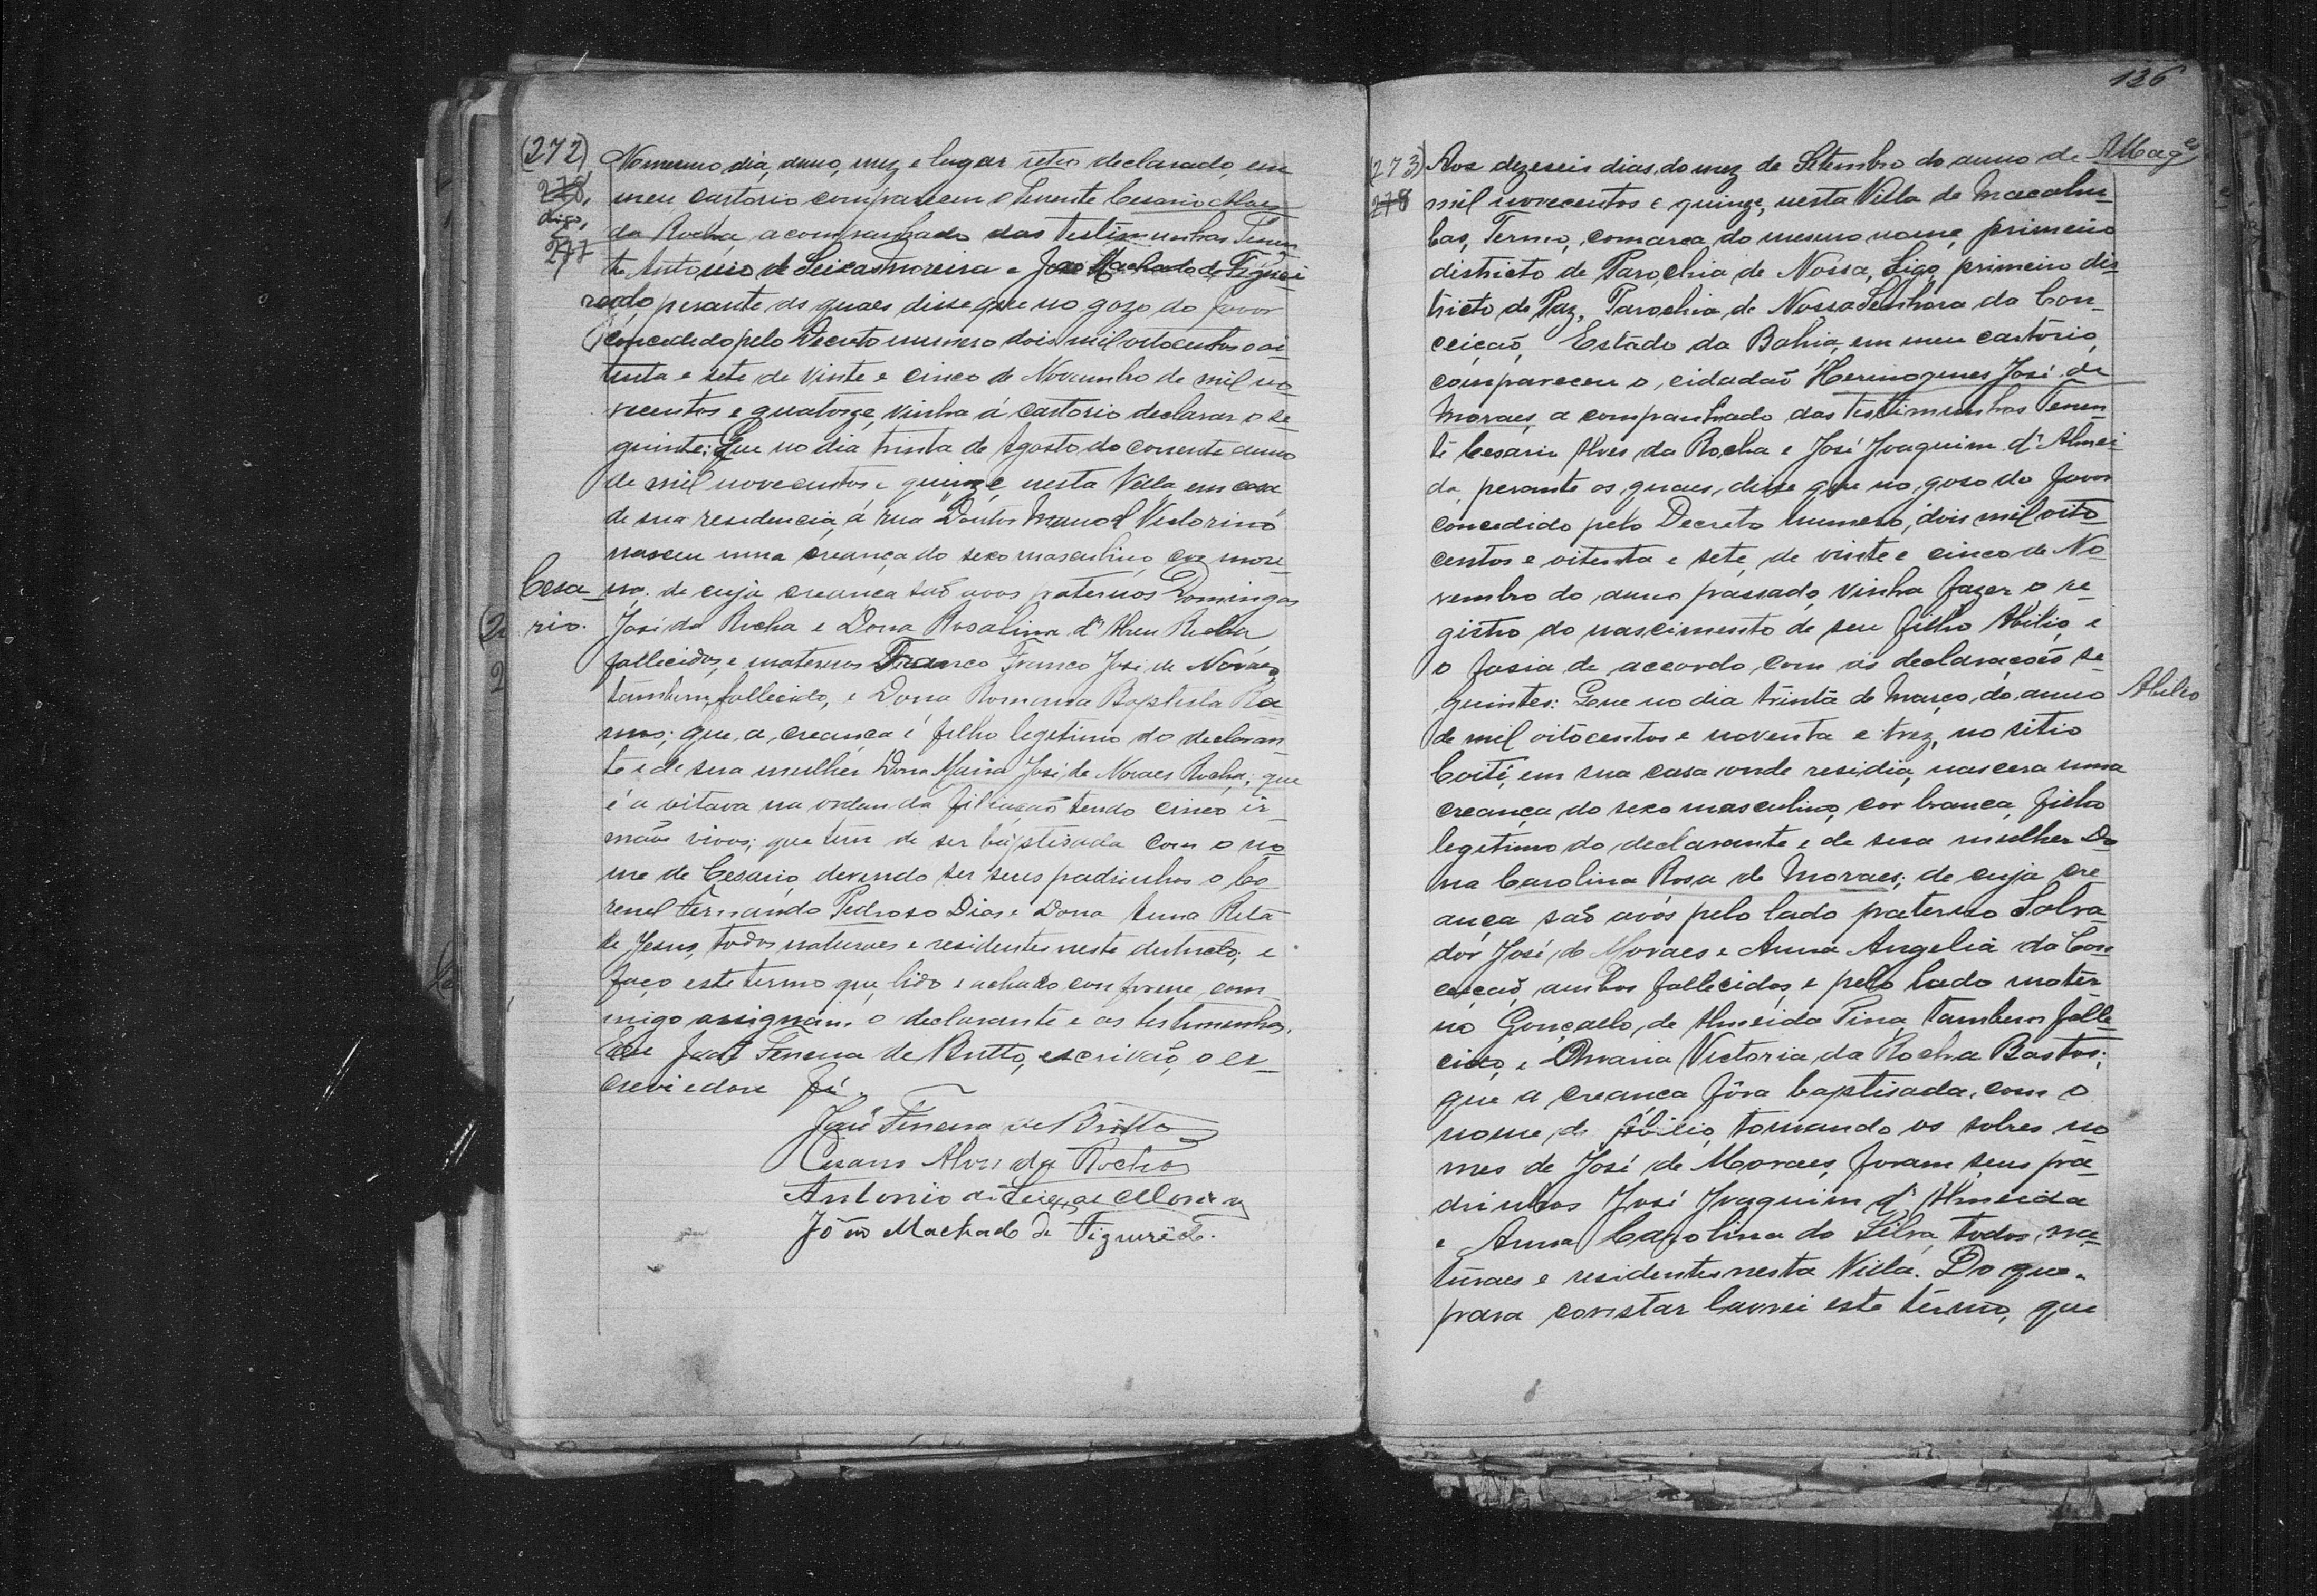 (272)
278,
digo,
277
No mesmo dia, anno, mez e lugar retro declarado, em
meu cartorio compareceu o Tenente Cesario Alves
da Rocha, acompanhado das testimunhas Tenen
te Antonio de Seixas Moreira e João Machado de Figuei
redo, perante os quaes disse que no gozo do favor
concedido pelo Decreto numero dois mil oitocentos e oi-
tenta e sete de vinte e cinco de Novembro de mil no
vecentos e quatorze, vinha á cartorio declarar o se-
guinte: Que no dia trinta de Agosto do corrente anno
de mil novecentos e quinze, nesta Villa, em casa
de sua residencia, á rua Doutor Manoel Victorino
nasceu uma creança do sexo masculino, cor more-
na. de cuja creança são avos paternos Domingos
José da Rocha e Dona Rosalina d'Abreu Rocha,
fallecidos, e maternos Franco José de Novaes,
tambem fallecido, e Dona Romana Baptista Ra-
mos; que a creança é filho legitimo do declaran-
te e de sua mulher Dona Maria José de Novaes Rocha; que
é a oitava na ordem da filiação tendo cinco ir-
mãos vivos; que tem de ser baptisada com o no
me de Cesario, devendo ser seus padrinhos o Co-
ronel Fernando Pedroso Dias e Dona Anna Rita
de Jesus, todos naturaes e residentes neste districto; e
faço este termo que, lido e achado conforme, com
migo assignam. o declarante e as testimunhas.
Eu José Ferreira de Britto, escrivão, o es-
crevi e dou fé.
José Ferreira de Britto
Cesario Alves da Rocha
Antonio de Seixas Moreira
João Machado de Figueirêdo.
Cesa-
rio.
136
(273)
278
Aos dezeseis dias do mez de Setembro do anno de
mil novecentos e quinze, nesta Villa de Macahu-
bas, Termo, comarca do mesmo nome, primeiro
districto de Parochia de Nossa, digo, primeiro dis-
tricto de Paz, Parochia de Nossa Senhora da Con-
ceição, Estado da Bahia, em meu cartório,
compareceu o cidadão Hermogenes José de
Moraes, acompanhado das testimunhas Tenen
te Cesario Alves da Rocha e José Joaquim d'Almei-
da, perante os quaes, disse que no goso do favor
concedido pelo Decreto numero, dois mil oito
centos e oitenta e sete, de vinte e cinco de No
vembro do anno passado, vinha fazer o re-
gistro do nascimento de seu filho Abilio, e
o fasia de accordo com as declarações se-
guintes: Que no dia trinta de Março, do anno
de mil oitocentos e noventa e trez, no sitio
Coité, em sua casa onde residia, nascera uma
creança do sexo masculino, cor branca, filho
legitimo do declarante e de sua mulher Do
na Carolina Rosa de Moraes; de cuja cre
ança são avós pelo lado paterno Salva
dor José de Moraes e Anna Angelia da Con
ceição, ambos fallecidos, e pelo lado mater
no Gonçallo de Almeida Pina, tambem falle-
cido, e Maria Victoria da Rocha Bastos;
que a creanca fôra baptisada, com o
nome de Abilio, tomando os sobres no
mes de José de Moraes, foram seus pa-
drinhos José Joaquim d'Almeida
e Anna Carolina da Silva, todos na-
turaes e residentes nesta Villa. Do que
para constar lavrei este termo, que
Abilio